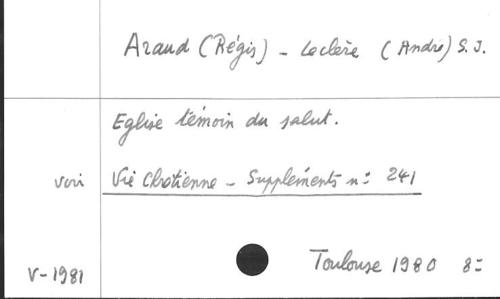 Araud (Régis) - Leclère (André) S.J.
Eglise témoin du salut.
voir Vie Chrétienne - Suppléments n: 241
Toulouse 1980 8=
V-1981